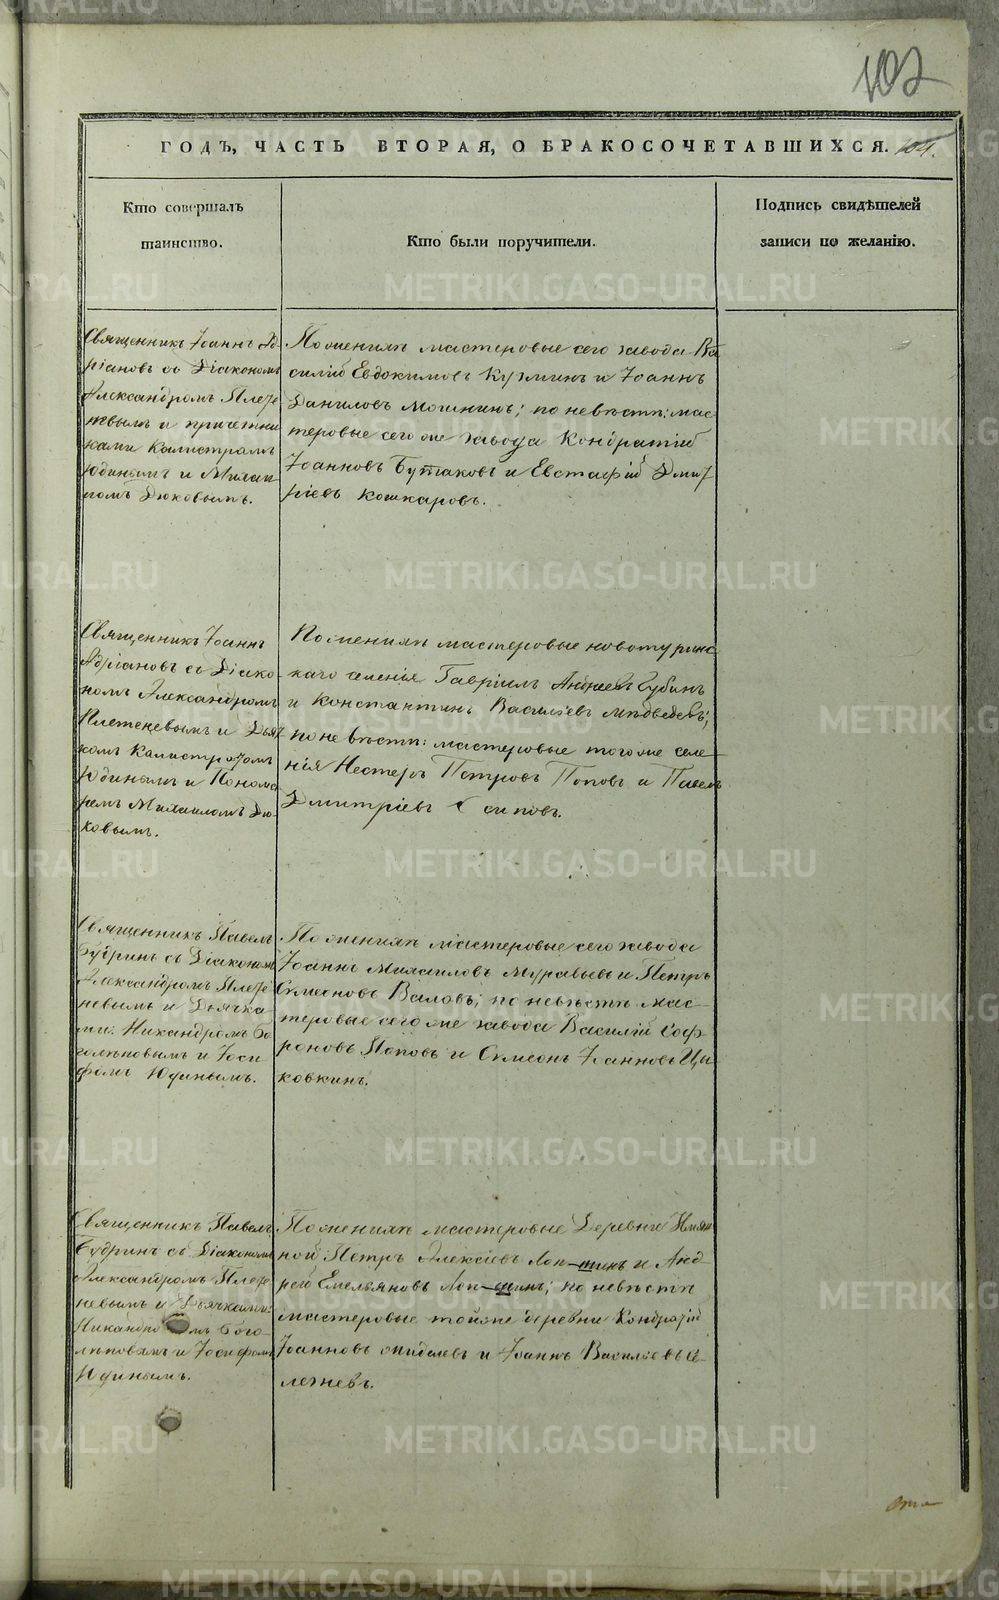 102
ГОДЪ, ЧАСТЬ ВТОРАЯ, О БРАКОСОЧЕТАВШИХСЯ. 104.
Кто совершалъ
таинство.
Кто были поручители.
Подпись свидѣтелей
записи по желанію.
Священникъ Іоаннъ Ад
ріановъ съ Діакономъ
Александромъ Плете
невымъ и причетни
ками Калистратомъ
Юдинымъ и Михаи
ломъ Дюковымъ.
По женихѣ мастеровые сего завода Ва
силій Евдокимовъ Кузминъ и Іоаннъ
Даниловъ Мошнинъ; по невѣстѣ: мас
теровые сего же завода Кондратій
Іоанновъ Бутаковъ и Евстафій Дмит
ріевъ Кошкаровъ.
Священникъ Іоаннъ
Адріановъ съ Діако
номъ Александромъ
Плетеневымъ и Дьяч
комъ Калистратомъ
Юдинымъ и Понома
ремъ Михаиломъ Дю
ковымъ.
По женихѣ мастеровые новотуринс
каго селенія Гавріилъ Андреевъ Губинъ
и Константинъ Васильевъ Медведевъ;
по невѣстѣ: мастеровые того же селе
нія Несторъ Петровъ Поповъ и Павелъ
Дмитріевъ Осиповъ.
Священникъ Павелъ
Будринъ съ Діакономъ
Александромъ Плете
невымъ и Дьячка
ми: Никандромъ Бо
голѣповымъ и Іоси
фомъ Юдинымъ.
По женихѣ мастеровые сего завода
Іоаннъ Михаиловъ Муравьевъ и Петръ
Симеоновъ Валовъ; по невѣстѣ мас-
теровые сего же завода Василій Соф
роновъ Поповъ и Симеонъ Іоанновъ Цы
ковкинъ.
Священникъ Павелъ
Будринъ съ Діакономъ
Александромъ Плете
невымъ и Дьячками:
Никандромъ Бого-
лѣповымъ и Іосифомъ
Юдинымъ.
По женихѣ мастеровые Деревни
ной Петръ Алексіевъ и Анд
рей Емельяновъ по невѣстѣ
мастеровые той же деревни Кондратій
Іоанновъ и Іоаннъ Васильевъ Се-
лезневъ.
METRIKI.GASO-URAL.RU